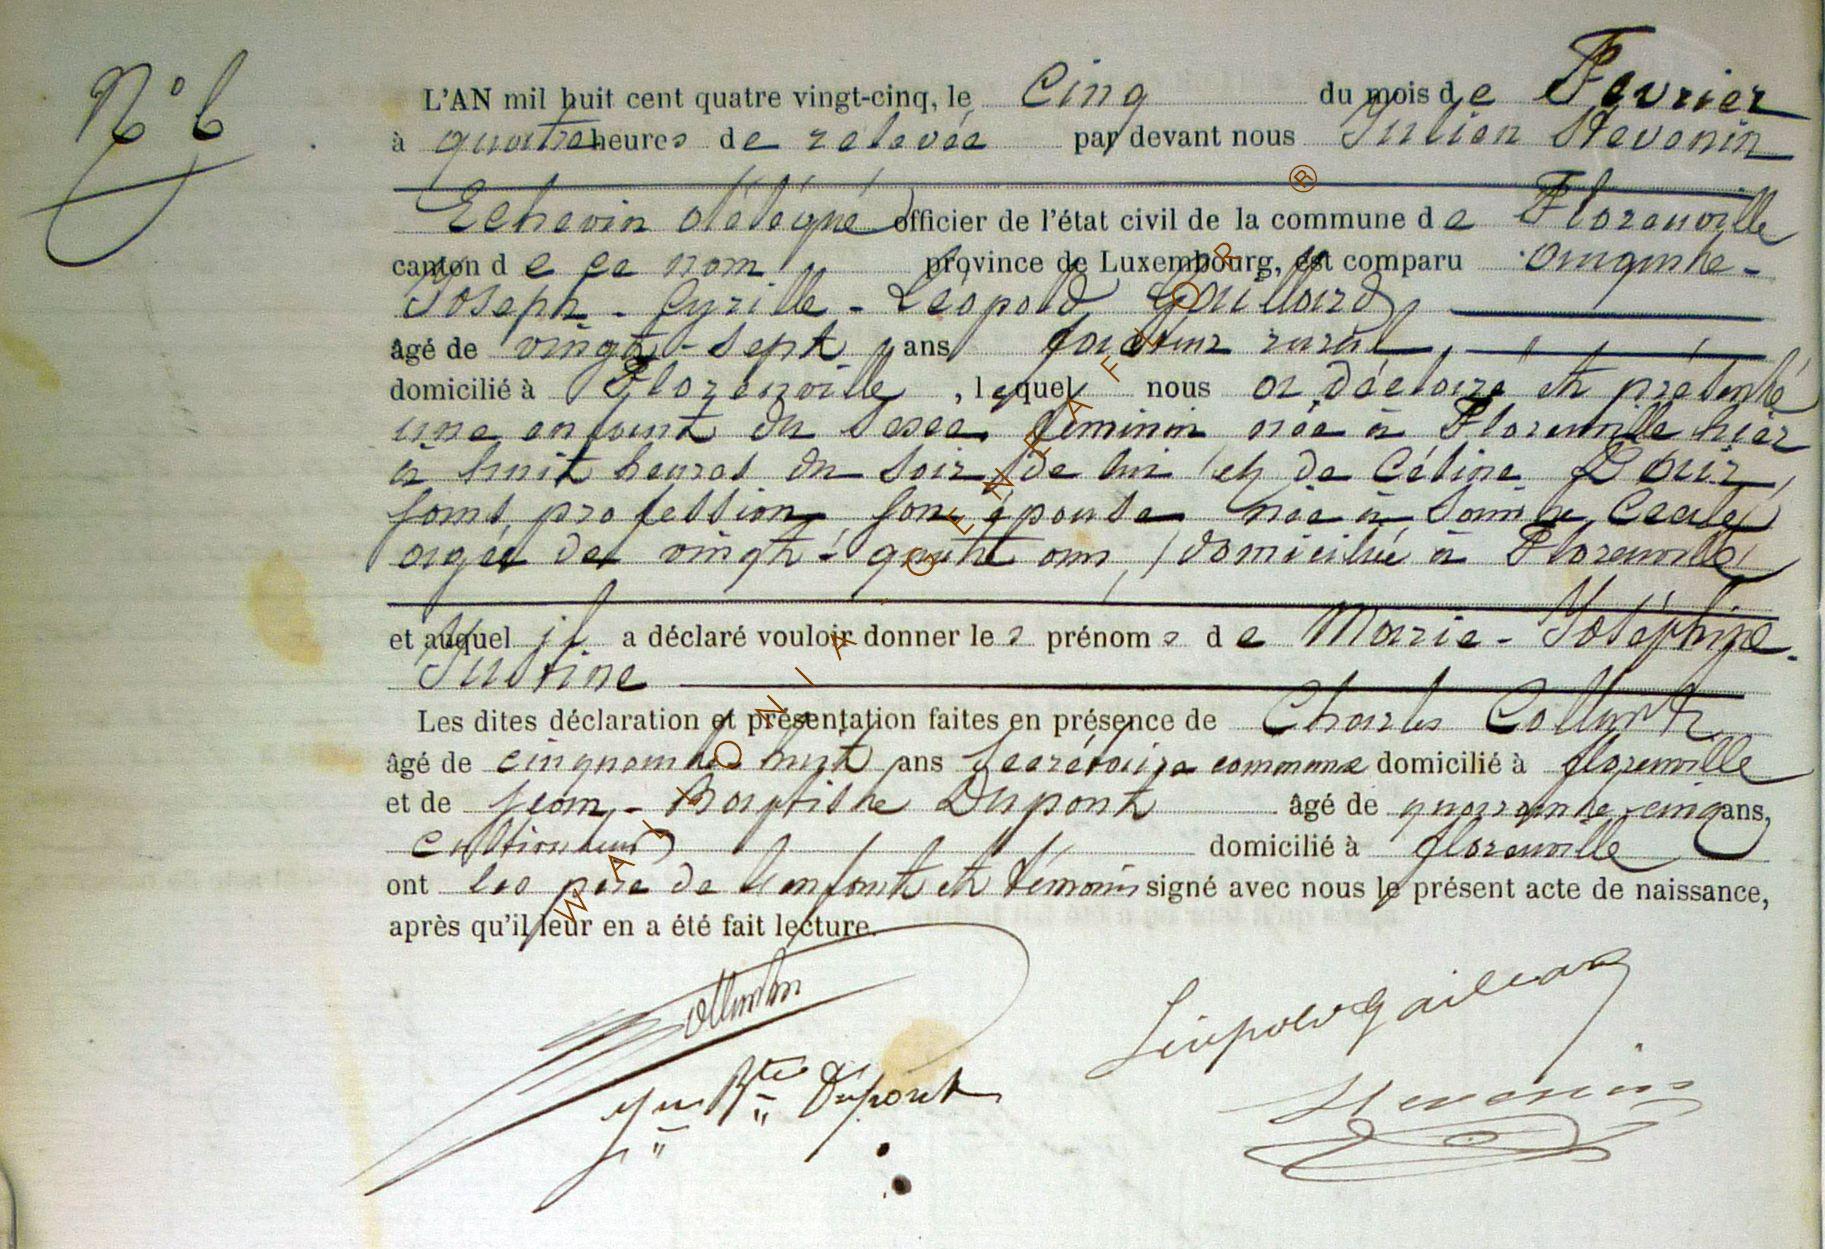 N° 6
L'AN mil huit cent quatre vingt-cinq, le cinq du mois de Fevrier
à quatre heures de relevée par devant nous Julien Stevenin
Echevin délégué officier de l'état civil de la commune de Florenville
canton de ce nom province de Luxembourg, est comparu
Joseph - Cyrille - Léopold Gaillard,
âgé de vingt-sept ans facteur rural
domicilié à Florenville, lequel nous a déclaré et présenté
une enfant du sexe féminin née à Florenville hier
à huit heures du soir, de lui et de Céline
sans profession son épouse née à Sainte Cecile
agée de vingt-quatre ans, domiciliée à Florenville
et auquel il a déclaré vouloir donner les prénoms de Marie - Joséphine -
Justine
Les dites déclaration et présentation faites en présence de Charles Collard
âgé de cinquante huit ans Secrétaire communal domicilié à florenville
et de Jean - Baptiste Dupont âgé de quarante-cinq ans,
cultivateur domicilié à florenville
ont les père de l'enfant et témoins signé avec nous le présent acte de naissance,
après qu'il leur en a été fait lecture.
Léopold Gaillard
Jn Bte Dupont
Stevenin
WALLONIA GENERA FEROR ®